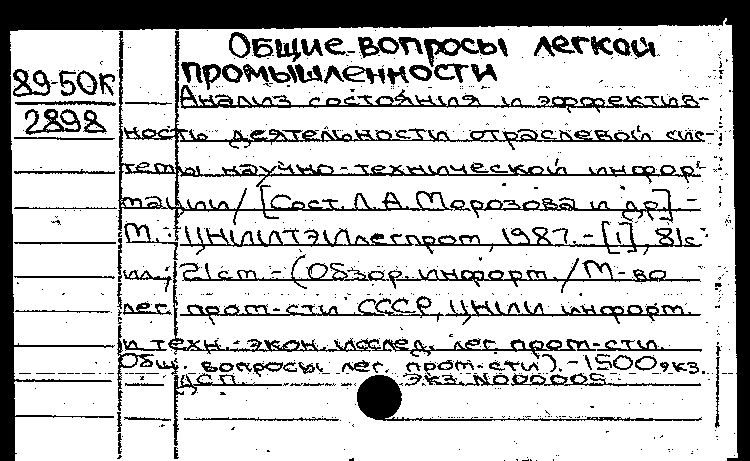 Общие вопросы легкой
промышленности
89-50К
2898
Анализ состояния и эффектив-
ность деятельности отраслевой сис-
темы научно-технической инфор-
мации/[Сост. Л.А. Морозова и др.]. -
М.: ЦНИИТЭИлегпром, 1987. - [1], 81с
ил.; 21см. - (Обзор. информ. / М-во
лег. пром-сти СССР, ЦНИИ информ.
и техн.-экон. исслед. лег. пром-сти.
Общ. вопросы лег. пром-сти). - 1500 экз.
ДСП. Экз. N000005.